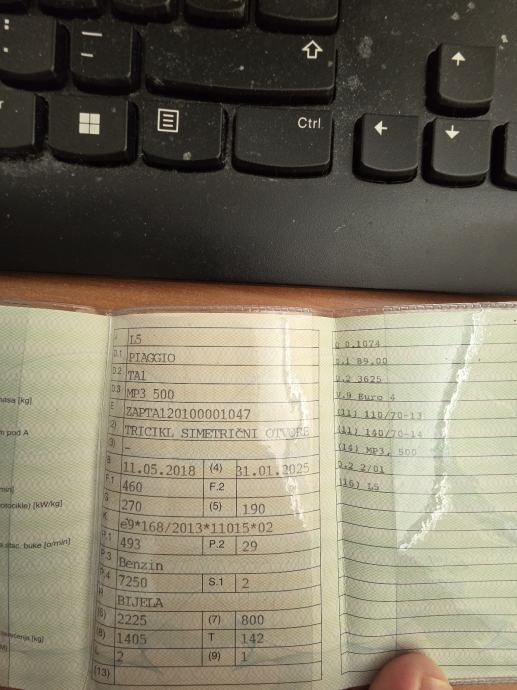 Ctrl
J L5
D.1 PIAGGIO
D.2 TA1
D.3 MP3 500
E ZAPTA120100001047
(2) TRICIKL SIMETRIČNI OTVORE
(3) -
B 11.05.2018 (4) 31.01.2025
F.1 460 F.2
G 270 (5) 190
K e9*168/2013*11015*02
P.1 493 P.2 29
P.3 Benzin
P.4 7250 S.1 2
R BIJELA
(6) 2225 (7) 800
(8) 1405 T 142
L 2 (9) 1
(13)
0.1074
U.1 89.00
U.2 3625
V.9 Euro 4
(11) 110/70-13
(11) 140/70-14
(14) MP3, 500
D.2 2/01
(16) L5
masa [kg]
m pod A
min]
otocikle) [kW/kg]
a stac. buke [o/min]
[kg]